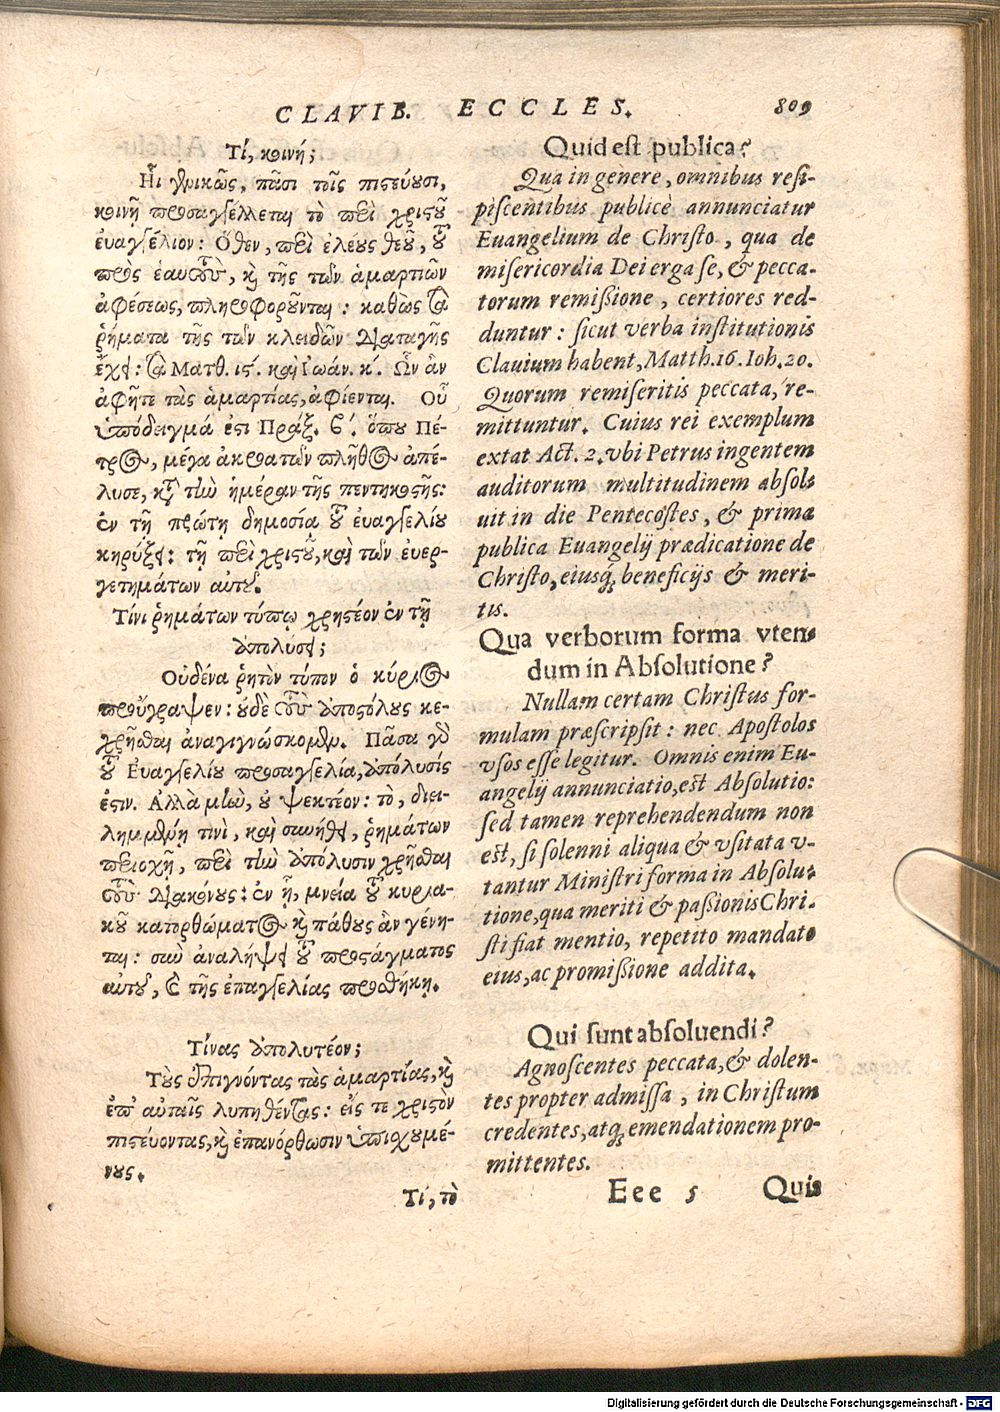 CLAVIB. ECCLES. 809
Τί, κοινή;
Ηἷ γενικῶς, πᾶσι τοῖς πιστεύουσι,
κοινῇ προσαγγέλλεται τὸ περὶ χριστοῦ
ἐυαγγέλιον: Ὅθεν, περὶ ἐλέους θεοῦ, τοῦ
πρὸς ἑαυτοὺς, καὶ τῆς τῶν ἁμαρτιῶν
ἀφέσεως, πληροφοροῦνται: καθὼς τὰ
ῥήματα τῆς τῶν κλειδῶν διαταγῆς
ἔχει: τὰ Ματθ. ις. καὶ Ἰωάν. κ. Ὧν ἂν
ἀφῆτε τὰς ἁμαρτίας, ἀφίενται. Οὗ
ὑπόδειγμά ἐστι Πράξ. β. ὅπου Πέ-
τρος, μέγα ἀκροατῶν πλῆθος ἀπέ-
λυσε, κατὰ τὴν ἡμέραν τῆς πεντηκοστῆς:
ἐν τῇ πρώτῃ δημοσίᾳ τοῦ ἐυαγγελίου
κηρύξει: τῇ περὶ χριστοῦ, καὶ τῶν ἐυερ-
γετημάτων αὐτοῦ.
Τίνι ῥημάτων τύπῳ χρηστέον ἐν τῇ
ἀπολύσει;
Οὐδένα ῥητὸν τύπον ὁ κύριος
προὔγραψεν: οὐδὲ τοὺς ἀποστόλους κε-
χρῆσθαι ἀναγιγνώσκομεν. Πᾶσα γὰρ
τοῦ Ἐυαγγελίου προσαγγελία, ἀπόλυσίς
ἐστιν. Ἀλλὰ μὴν, οὐ ψεκτέον: τὸ, διει-
λημμένῃ τινὶ, καὶ συνήθει, ῥημάτων
περιοχῇ, περὶ τὴν ἀπόλυσιν χρῆσθαι
τοὺς διακόνους: ἐν ᾗ, μνεία τοῦ κυρια-
κοῦ κατορθώματος καὶ πάθους ἂν γένη-
ται: σὺν ἀναλήψει τοῦ προστάγματος
αὐτοῦ, καὶ τῆς ἐπαγγελίας προσθήκῃ.
Τίνας ἀπολυτέον;
Τοὺς ἐπιγνόντας τὰς ἁμαρτίας, καὶ
ἐπ' αὐταῖς λυπηθέντας: εἴς τε χριστὸν
πιστεύοντας, καὶ ἐπανόρθωσιν ὑπισχουμέ-
νους.
Τί, τὸ
Quid est publica?
Qua in genere, omnibus resi-
piscentibus publicè annunciatur
Euangelium de Christo, qua de
misericordia Dei erga se, & pecca-
torum remißione, certiores red-
duntur: sicut verba institutionis
Clauium habent, Matth. 16. Ioh. 20.
Quorum remiseritis peccata, re-
mittuntur. Cuius rei exemplum
extat Act. 2. vbi Petrus ingentem
auditorum multitudinem absol-
uit in die Pentecostes, & prima
publica Euangelij prædicatione de
Christo, eiusq; beneficijs & meri-
tis.
Qua verborum forma vten-
dum in Absolutione?
Nullam certam Christus for-
mulam præscripsit: nec Apostolos
vsos esse legitur. Omnis enim Eu-
angelij annunciatio, est Absolutio:
sed tamen reprehendendum non
est, si solenni aliqua & vsitata v-
tantur Ministri forma in Absolu-
tione, qua meriti & paßionis Chri-
sti fiat mentio, repetito mandato
eius, ac promißione addita.
Qui sunt absoluendi?
Agnoscentes peccata, & dolen-
tes propter admissa, in Christum
credentes, atq; emendationem pro-
mittentes.
Eee 5 Quis
Digitalisierung gefördert durch die Deutsche Forschungsgemeinschaft - DFG